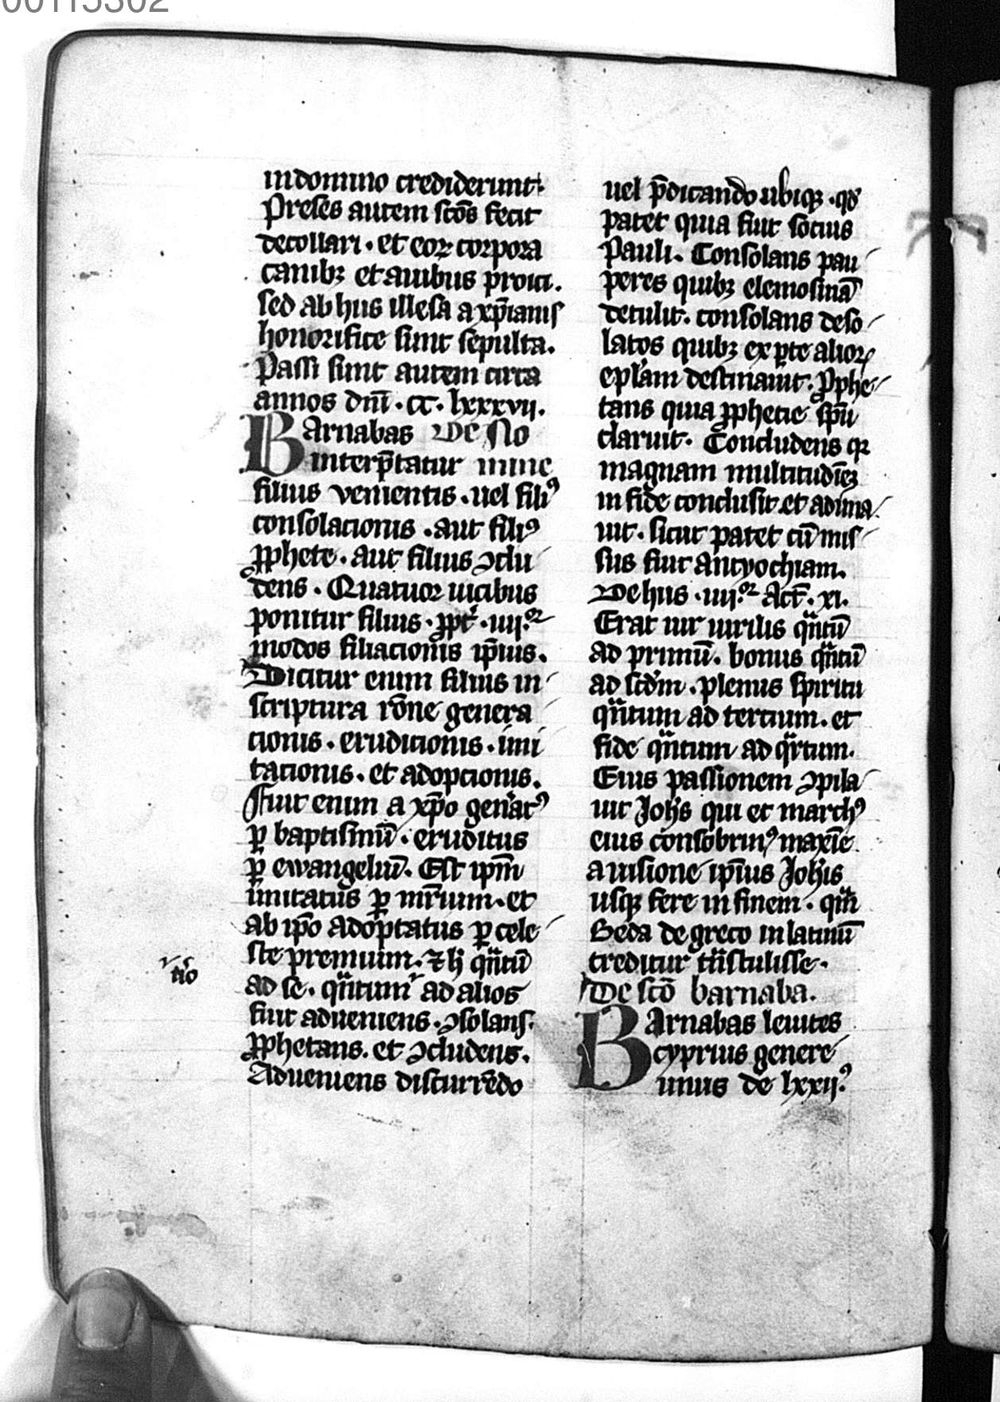 00115302
in domino crediderunt.
Preses autem sc̄os fecit
decollari. et eoꝝ corpora
canibꝫ et auibus proici.
sed ab hiis illesa a xp̄ianis
honorifice sunt sepulta.
Passi sunt autem circa
annos dn̄i .cc. lxxxvij.
Barnabas De No
interp̄tatur mine
filius venientis. uel filiꝰ
consolacionis. aut filiꝰ
ꝓphete. aut filius ↄclu
dens. Quatuor uicibus
ponitur filius. ꝓpt̄ .iiij.or
modos filiacionis ip̄ius.
Dicitur enim filius in
scriptura rōne genera
cionis. erudicionis. imi
tacionis. et adopcionis.
Fuit enim a xp̄o gen̄atꝰ
ꝑ baptismū. eruditus
ꝑ ewangeliū. Est ip̄m
imitatus ꝑ mr̄ium. et
ab ip̄o adoptatus ꝑ cele
ste premium. ⁊ h̄ qn̄tū
ad se. qn̄tum ad alios
fuit adueniens. ↄsolans.
ꝓphetans. et ↄcludens.
Adueniens discurrēdo
uel p̄dicando ubiqꝫ. qd̄
patet quia fuit socius
Pauli. Consolans pau
peres quibꝫ elemosinā
detulit. consolans deso
latos quibꝫ ex ꝑte alioꝝ
ep̄lam destinauit. Ꝓphe
tans quia ꝓphetie sp̄u
claruit. Concludens qꝛ
magnam multitudinē
in fide conclusit et aduna
uit. sicut patet cū mis
sus fuit Ancyochiam.
De hiis .iiij.or Act̄. xi.
Erat uir uirilis qn̄tū
ad primū. bonus qn̄tū
ad scd̄m. plenus spiritu
qn̄tum ad tercium. et
fide qn̄tum ad qr̄tum.
Eius passionem ↄpila
uit Joh̄s qui et marchꝰ
eius consobrinꝰ maxīe
a uisione ip̄ius Joh̄is
usqꝫ fere in finem. quā
Beda de greco in latinū
creditur tn̄stulisse.
De sc̄o barnaba.
Barnabas leuites
cyprius genere
unus de lxxij.